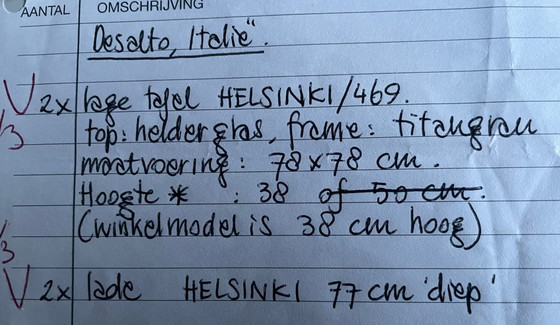 AANTAL OMSCHRIJVING
Desalto, Italië".
V 2x lage tafel HELSINKI/469.
/3 top: helder glas, frame: titangrau
maatvoering: 78x78 cm.
Hoogte * : 38 of 50 cm.
(winkelmodel is 38 cm hoog)
/3
V 2x lade HELSINKI 77 cm 'diep'